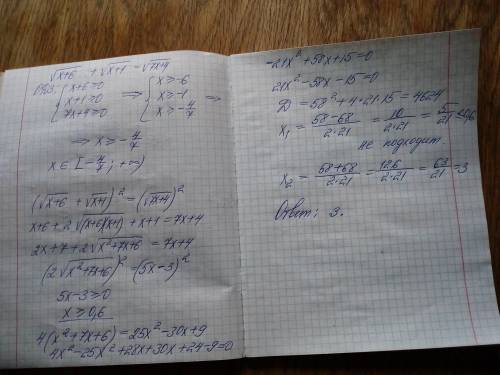 √x+6 + √x+1 = √7x+4
ОДЗ: { x+6≥0 ⇒ { x≥-6 ⇒
x+1≥0 x≥-1
7x+4≥0 x≥-4/7
⇒ x≥-4/7
x∈[-4/7; +∞)
(√x+6 + √x+1)² = (√7x+4)²
x+6+2√(x+6)(x+1) + x+1 = 7x+4
2x+7+2√x²+7x+6 = 7x+4
(2√x²+7x+6)² = (5x-3)²
5x-3≥0
x≥0,6
4(x²+7x+6) = 25x²-30x+9
4x²-25x²+28x+30x+24-9=0
-21x²+58x+15=0
21x²-58x-15=0
D=58²+4·21·15=4624
x₁=(58-68)/(2·21) = 10/(2·21) = 5/21 ≤0,6
не подходит.
x₂=(58+68)/(2·21) = 126/(2·21) = 63/21 = 3
Ответ: 3.